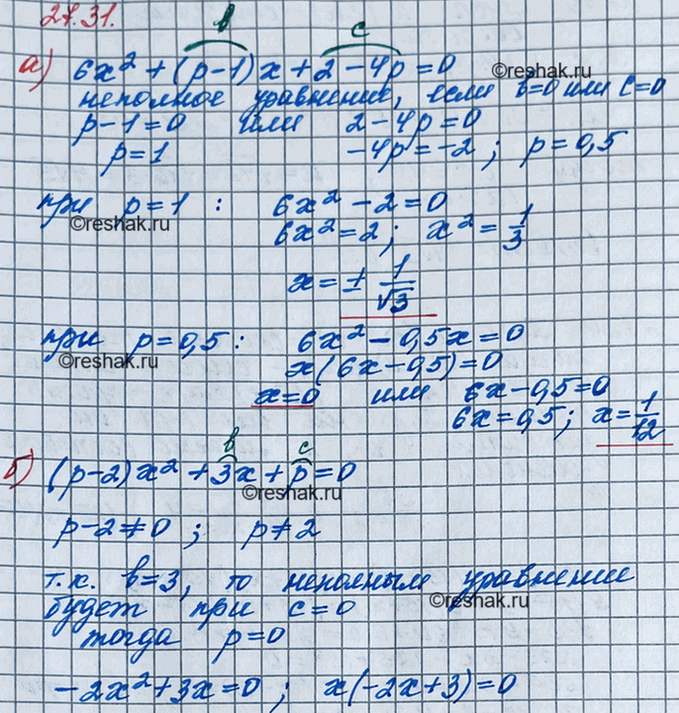 27.31.
b c
а) 6x² + (p-1)x + 2 - 4p = 0
©reshak.ru
неполное уравнение, если b=0 или c=0
p-1=0 или 2-4p=0
p=1 -4p=-2 ; p=0,5
при p=1 : 6x² - 2 = 0
©reshak.ru
6x²=2 ; x² = 1/3
x = ± 1/√3
при p=0,5 : 6x² - 0,5x = 0
©reshak.ru
x(6x-0,5)=0
x=0 или 6x-0,5=0
6x=0,5 ; x=1/12
b c
б) (p-2)x² + 3x + p = 0
©reshak.ru
p-2≠0 ; p≠2
т.к. b=3, то неполным уравнение
будет при c=0
©reshak.ru
тогда p=0
-2x²+3x=0 ; x(-2x+3)=0